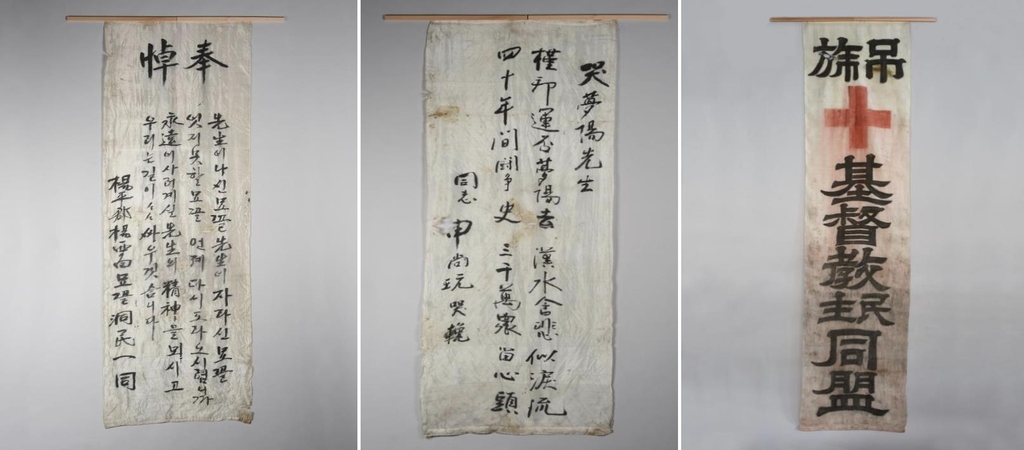 奉悼
先生이나신묘꼴 先生이 자라신묘꼴
잇지못할묘꼴 언제 다시 도라오시렵니까
永遠이사러게신 先生의 精神을 뫼시고
우리는길이 싸우겟슴니다
楊平郡楊西面묘꼴洞民一同
哭夢陽先生
槿邦運否夢陽去 漢水含悲似淚流
四十年间鬪爭史 三千萬衆留心頭
同志 申尚玩 哭輓
吊旗
基督教民主同盟